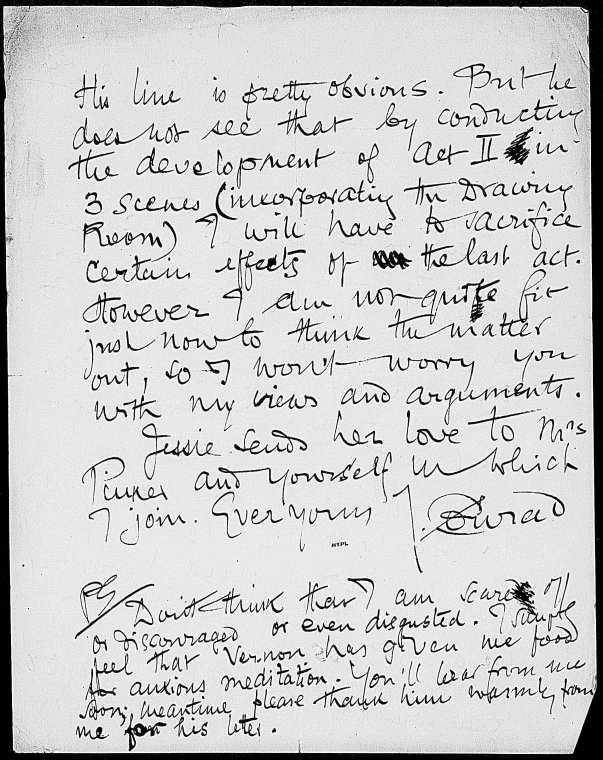 His line is pretty obvious. But he
does not see that by conducting
the development of Act II in
3 scenes (incorporating the Drawing
Room) I will have to sacrifice
certain effects of the last act.
However I am not quite fit
just now to think the matter
out, so I won't worry you
with my views and arguments.
Jessie sends her love to Mrs
Pinker and yourself in which
I join. Ever yours J. Conrad
NYPL
PS/ Don't think that I am scared off
or discouraged or even disgusted. I simply
feel that Vernon has given me food
for anxious meditation. You'll hear from me
soon; meantime please thank him warmly from
me for his letter.